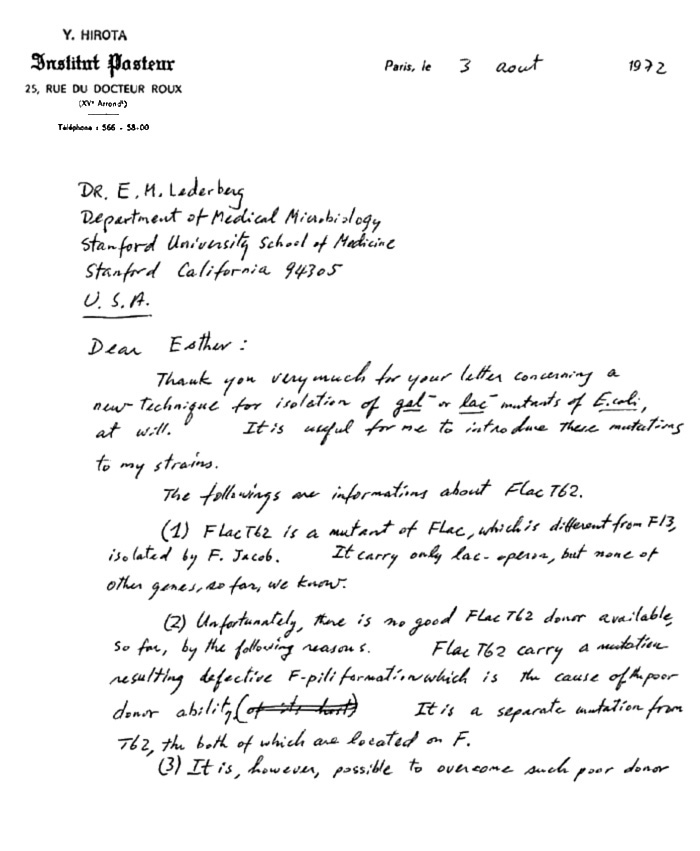 Y. HIROTA
Institut Pasteur
25, RUE DU DOCTEUR ROUX
(XVe Arrondt)
Téléphone : 566 - 58-00
Paris, le 3 aout 1972
DR. E. M. Lederberg
Department of Medical Microbiology
Stanford University School of Medicine
Stanford California 94305
U. S. A.
Dear Esther :
Thank you very much for your letter concerning a
new technique for isolation of gal⁻ or lac⁻ mutants of E.coli,
at will." It is useful for me to introduce these mutations
to my strains.
The followings are informations about Flac T62.
(1) Flac T62 is a mutant of Flac, which is different from F13,
isolated by F. Jacob. It carry only lac-operon, but none of
other genes, so far, we know.
(2) Unfortunately, there is no good Flac T62 donor available,
so far, by the following reasons. Flac T62 carry a mutation
resulting defective F-pili formation which is the cause of the poor
donor ability (of its host) It is a separate mutation from
T62, the both of which are located on F.
(3) It is, however, possible to overcome such poor donor